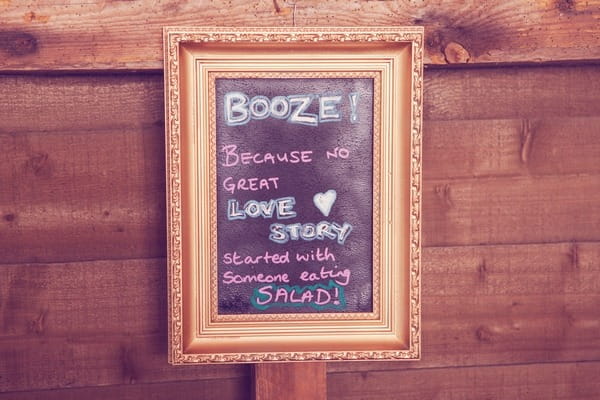 BOOZE!
BECAUSE NO
GREAT
LOVE
STORY
started with
Someone eating
SALAD!